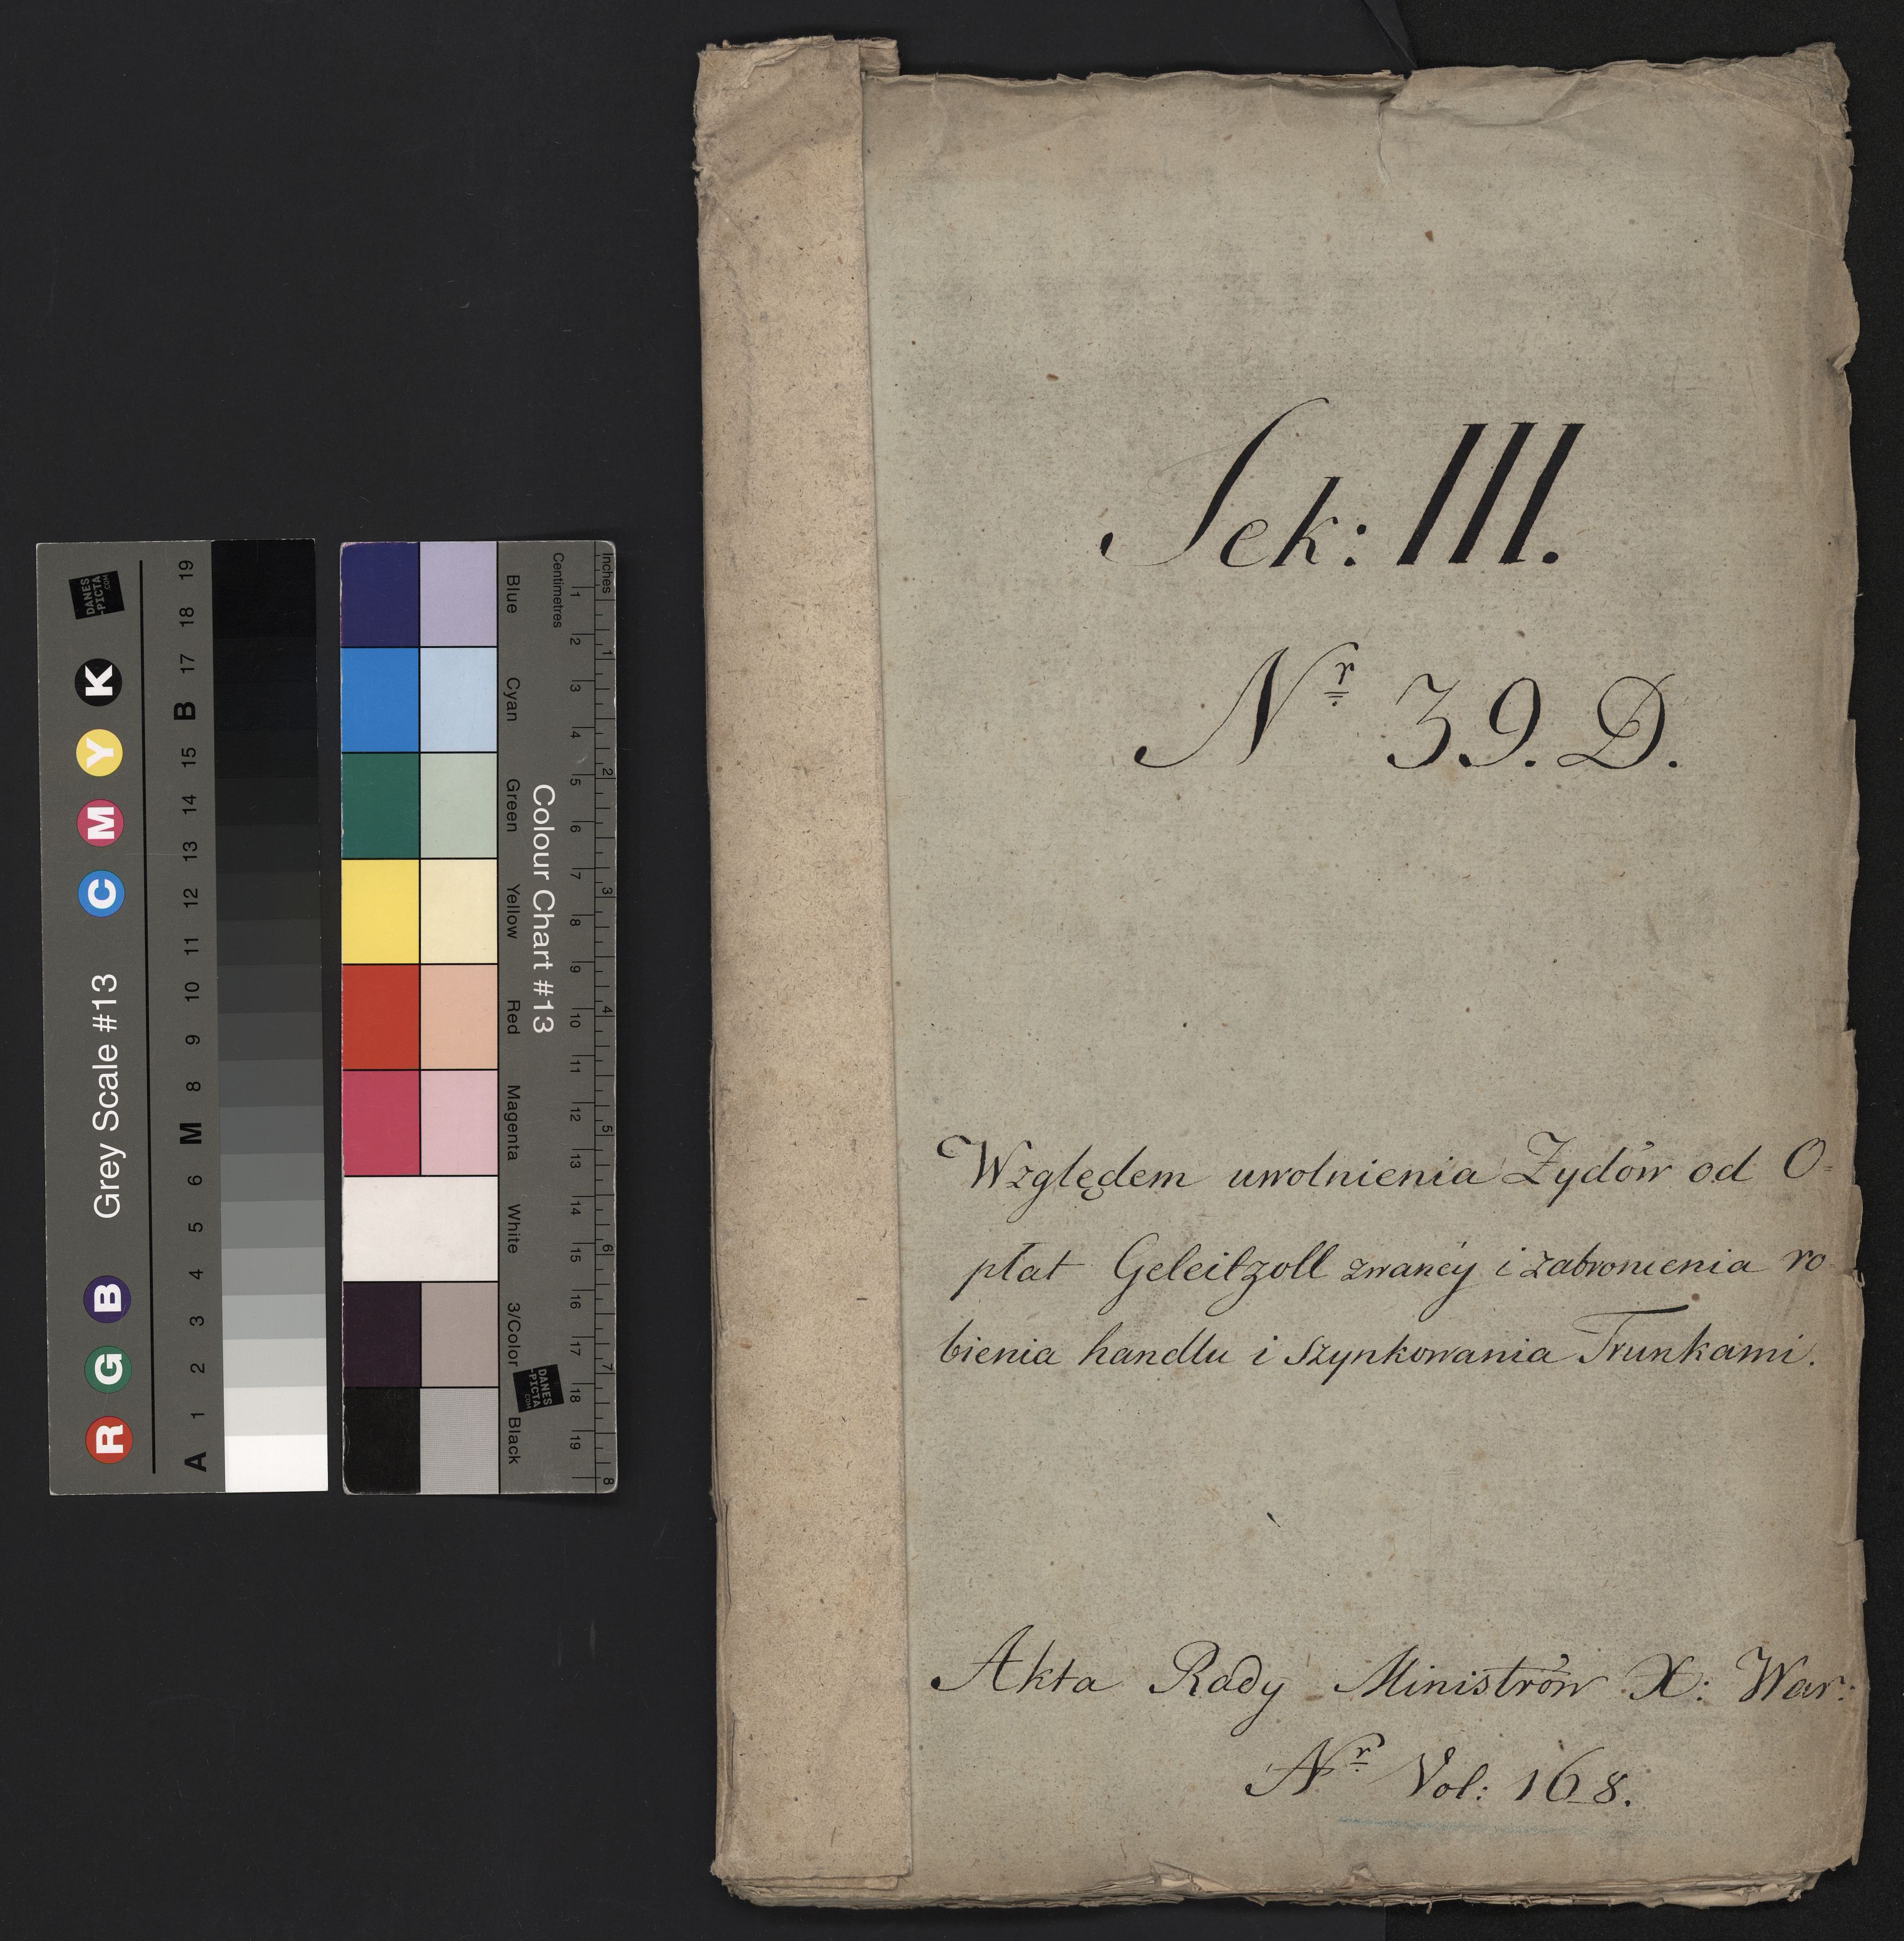 Sek: III.
Nr 39. D.
Względem uwolnienia Żydów od O=
płat Geleitzoll zwanéy i zabronienia ro
bienia handlu i szynkowania Trunkami.
Akta Rady Ministrów X: War:
Nr Vol: 168.
Grey Scale #13
R G B C M Y K
DANES
-PICTA
.COM
A 1 2 3 4 5 6 M 8 9 10 11 12 13 14 15 B 17 18 19
Colour Chart #13
Blue Cyan Green Yellow Red Magenta White 3/Color Black
DANES
-PICTA
.COM
Centimetres 1 2 3 4 5 6 7 8 9 10 11 12 13 14 15 16 17 18 19
Inches 1 2 3 4 5 6 7 8